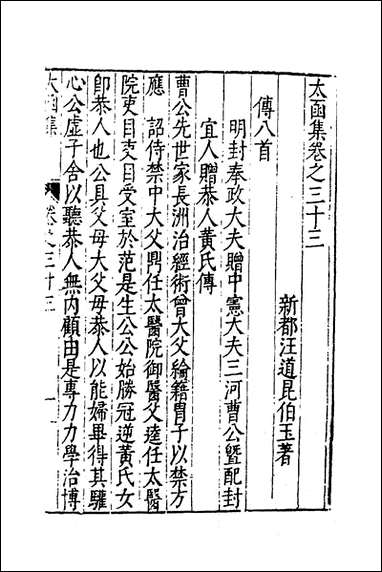 太函集卷之三十三
新都汪道昆伯玉著
傳八首
明封奉政大夫贈中憲大夫三河曹公暨配封
宜人贈恭人黃氏傳
曹公先世家長洲治經術曾大父綸籍胄子以禁方
應　詔侍禁中大父鼎任太醫院御醫父逵任太醫
院吏目吏目受室於范是生公公始勝冠逆黃氏女
即恭人也公具父母大父母恭人以能婦畢得其驩
心公虛子舍以聽恭人無內顧由是專力力學治博
太函集　卷之三十三　一